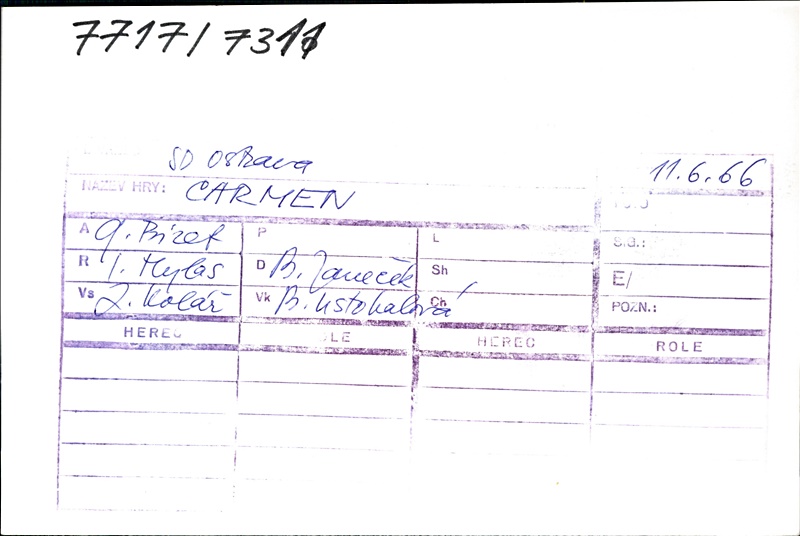 7717/7311
SD Ostrava 11.6.66
NÁZEV HRY: CARMEN
A G. Bizet P L S.G.:
R I. Hylas D B. Janeček Sh E/
Vs Z. Kolář Vk B. Ustohalová Ch POZN.:
HEREC ROLE HEREC ROLE